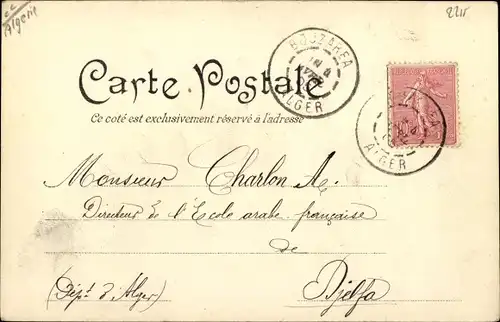 Algérie
2215
BOUZAREA
ALGER
Carte Postale
Ce côté est exclusivement réservé à l'adresse
ALGER
Monsieur Charlon A.
Directeur de l'Ecole arabe française
de
Djelfa
(Dépt d'Alger)